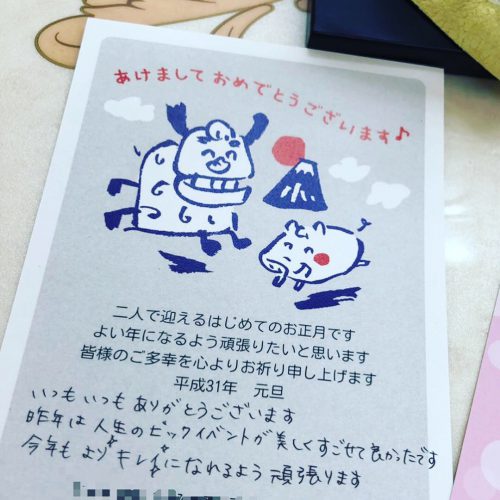 あけましておめでとうございます♪
二人で迎えるはじめてのお正月です
よい年になるよう頑張りたいと思います
皆様のご多幸を心よりお祈り申し上げます
平成31年 元旦
いつもいつもありがとうございます
昨年は人生のビックイベントが美しくすごせて良かったです
今年もよりキレイになれるよう頑張ります